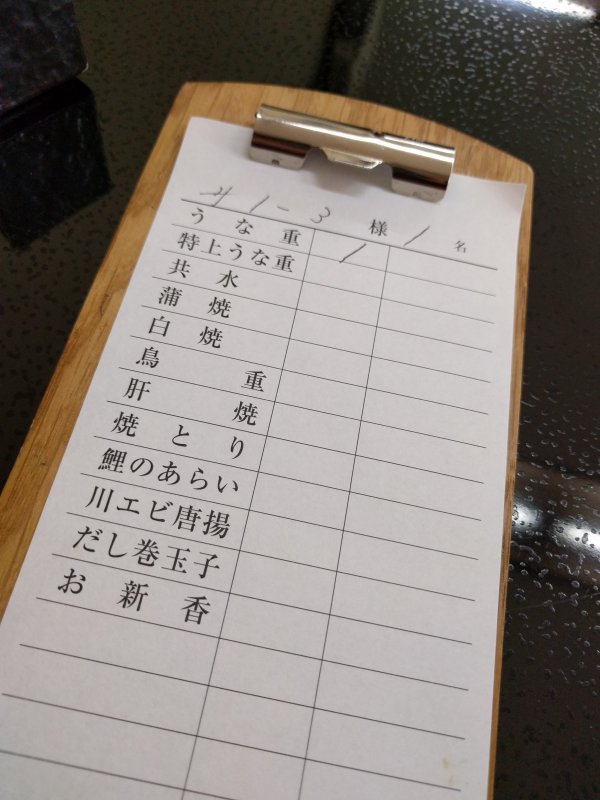 1-3 様 1 名
うな重
特上うな重 1
共水
蒲焼
白焼
鳥重
肝焼
焼とり
鯉のあらい
川エビ唐揚
だし巻玉子
お新香